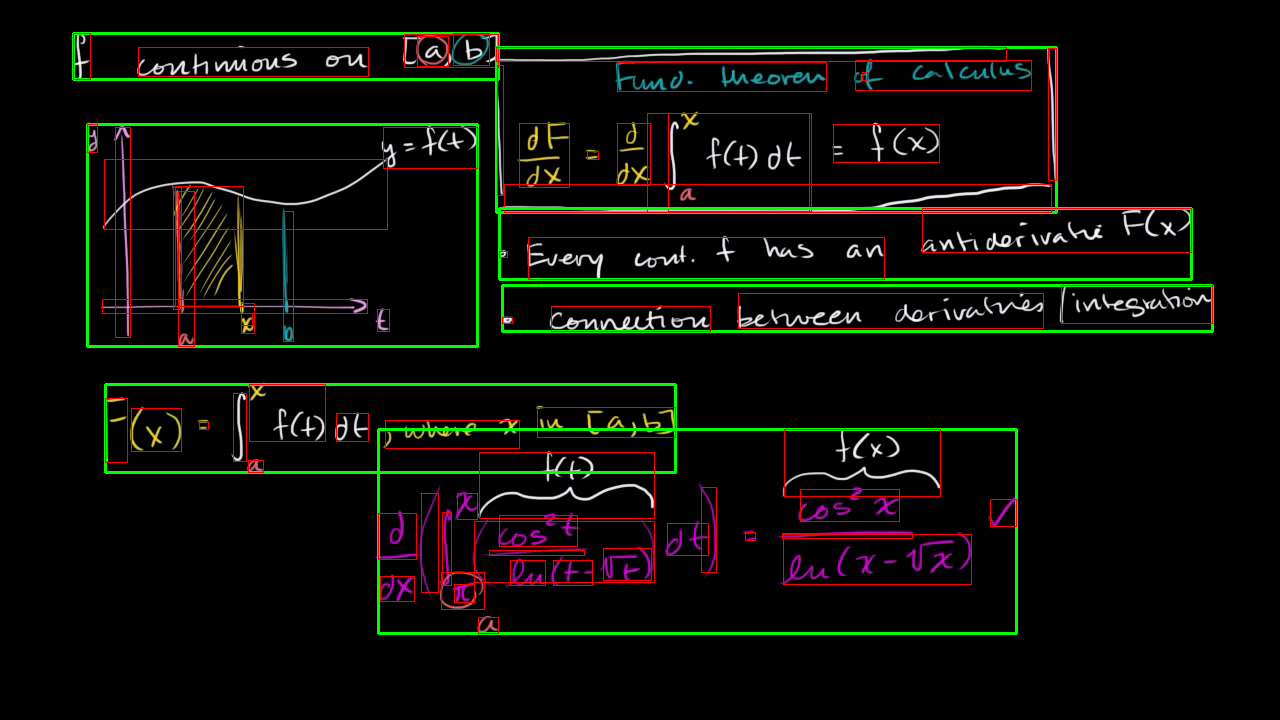 f continuous on [a,b]
Fund. theorem of calculus
dF/dx = d/dx ∫_a^x f(t) dt = f(x)
y
y = f(t)
a x b t
• Every cont. f has an antiderivative F(x)
• connection between derivatives / integration
F(x) = ∫_a^x f(t) dt, where x in [a,b]
f(t) f(x)
d/dx (∫_π^x (cos² t / ln(t-√t)) dt) = cos² x / ln(x-√x) ✓
a